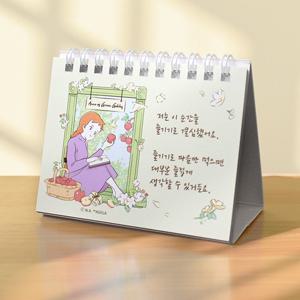 Anne of Green Gables
저는 이 순간을
즐기기로 결심했어요.
즐기기로 마음만 먹으면
대부분 즐겁게
생각할 수 있거든요.